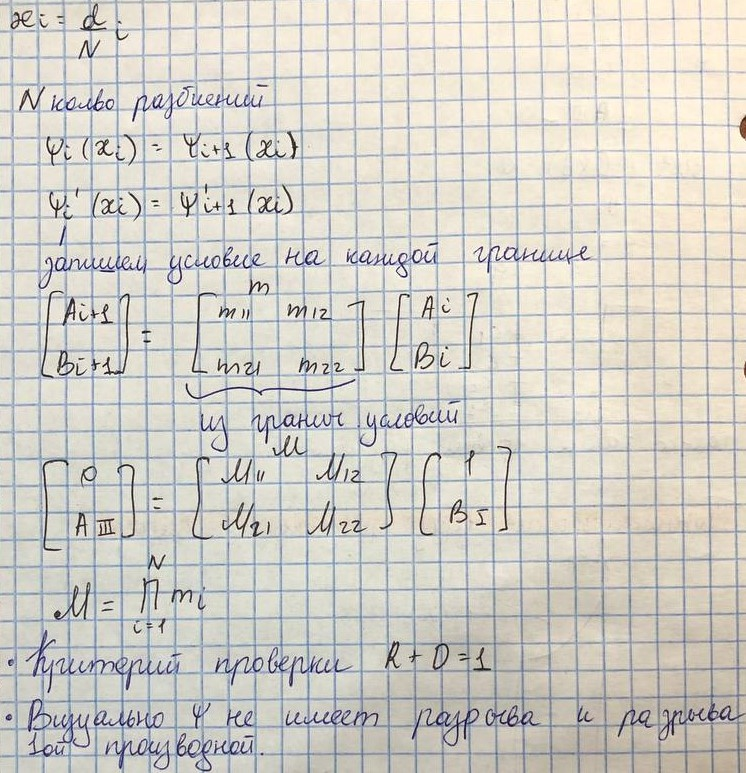 xi = d/N i
N кол-во разбиений
ψi (xi) = ψi+1 (xi)
ψi' (xi) = ψ'i+1 (xi)
запишем условие на каждой границе
m
[Ai+1 Bi+1] = [m11 m12 m21 m22] [Ai Bi]
из гранич условий
M
[0 AIII] = [M11 M12 M21 M22] [1 BI]
M = ∏ mi (i=1, N)
• Критерий проверки R + D = 1
• Визуально ψ не имеет разрыва и разрыва
1ой производной.